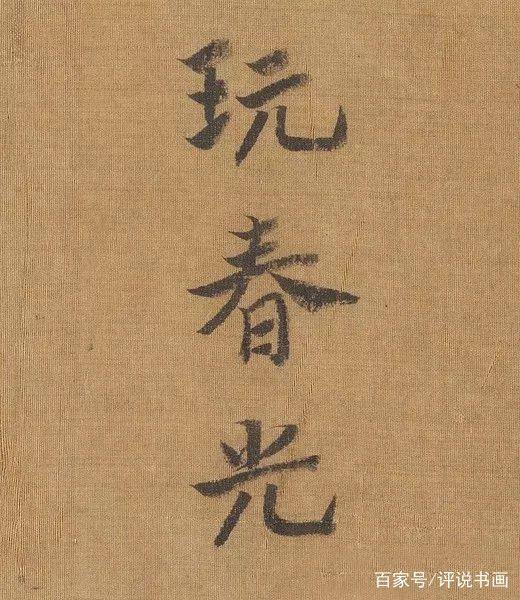 玩春光
百家号/评说书画